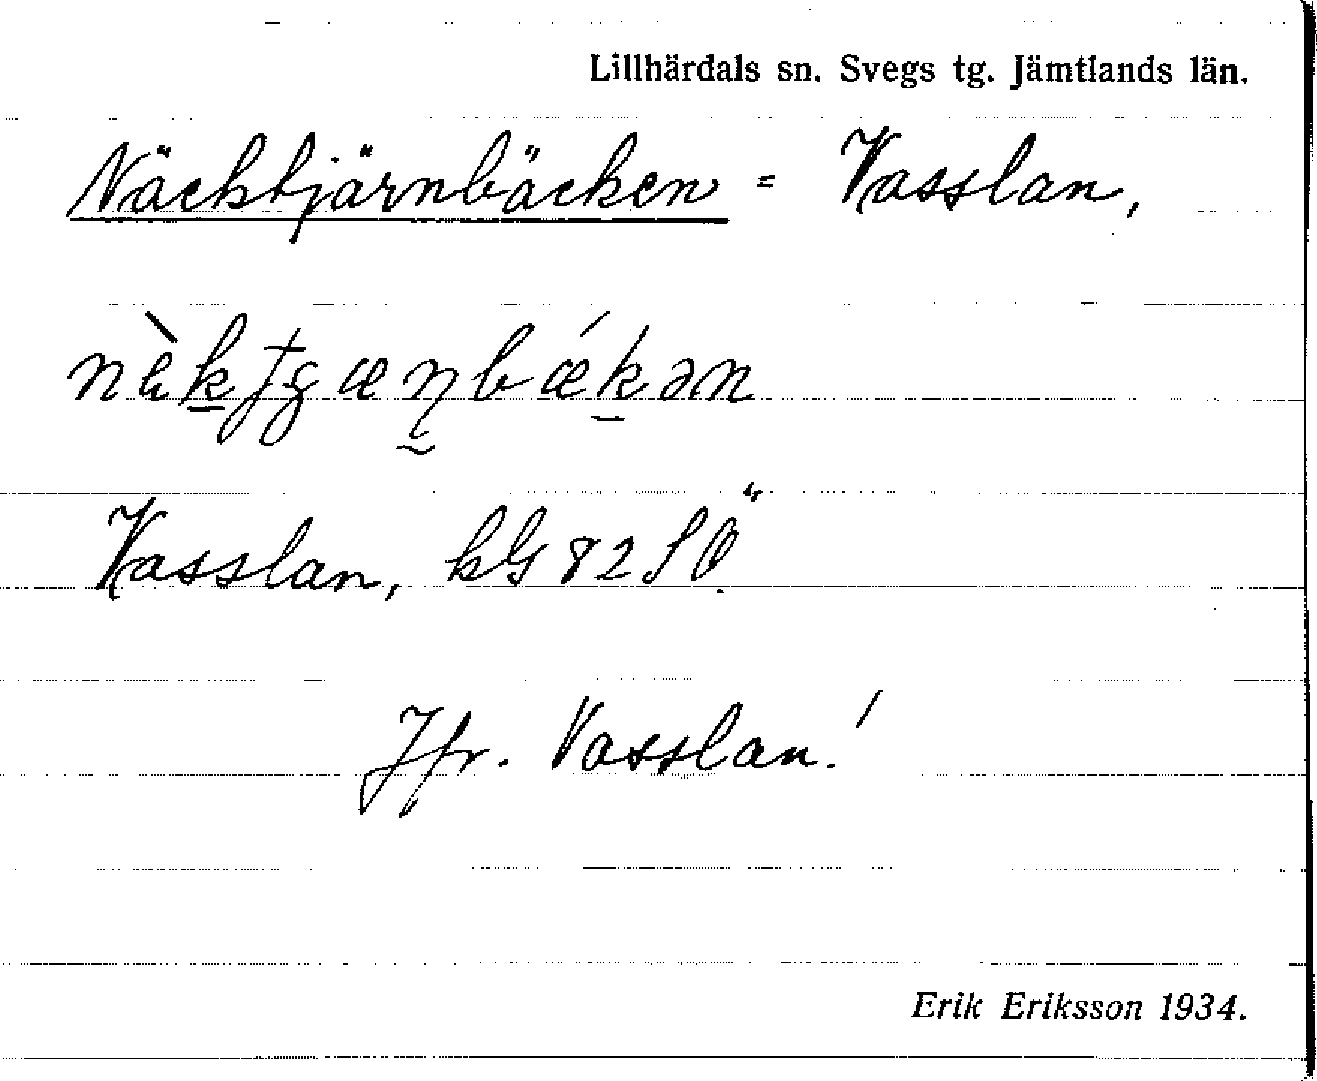 Lillhärdals sn. Svegs tg. Jämtlands län.
Näcktjärnbäcken = Vasslan,
Vasslan, kG 82 SÖ.
Jfr. Vasslan!
Erik Eriksson 1934.